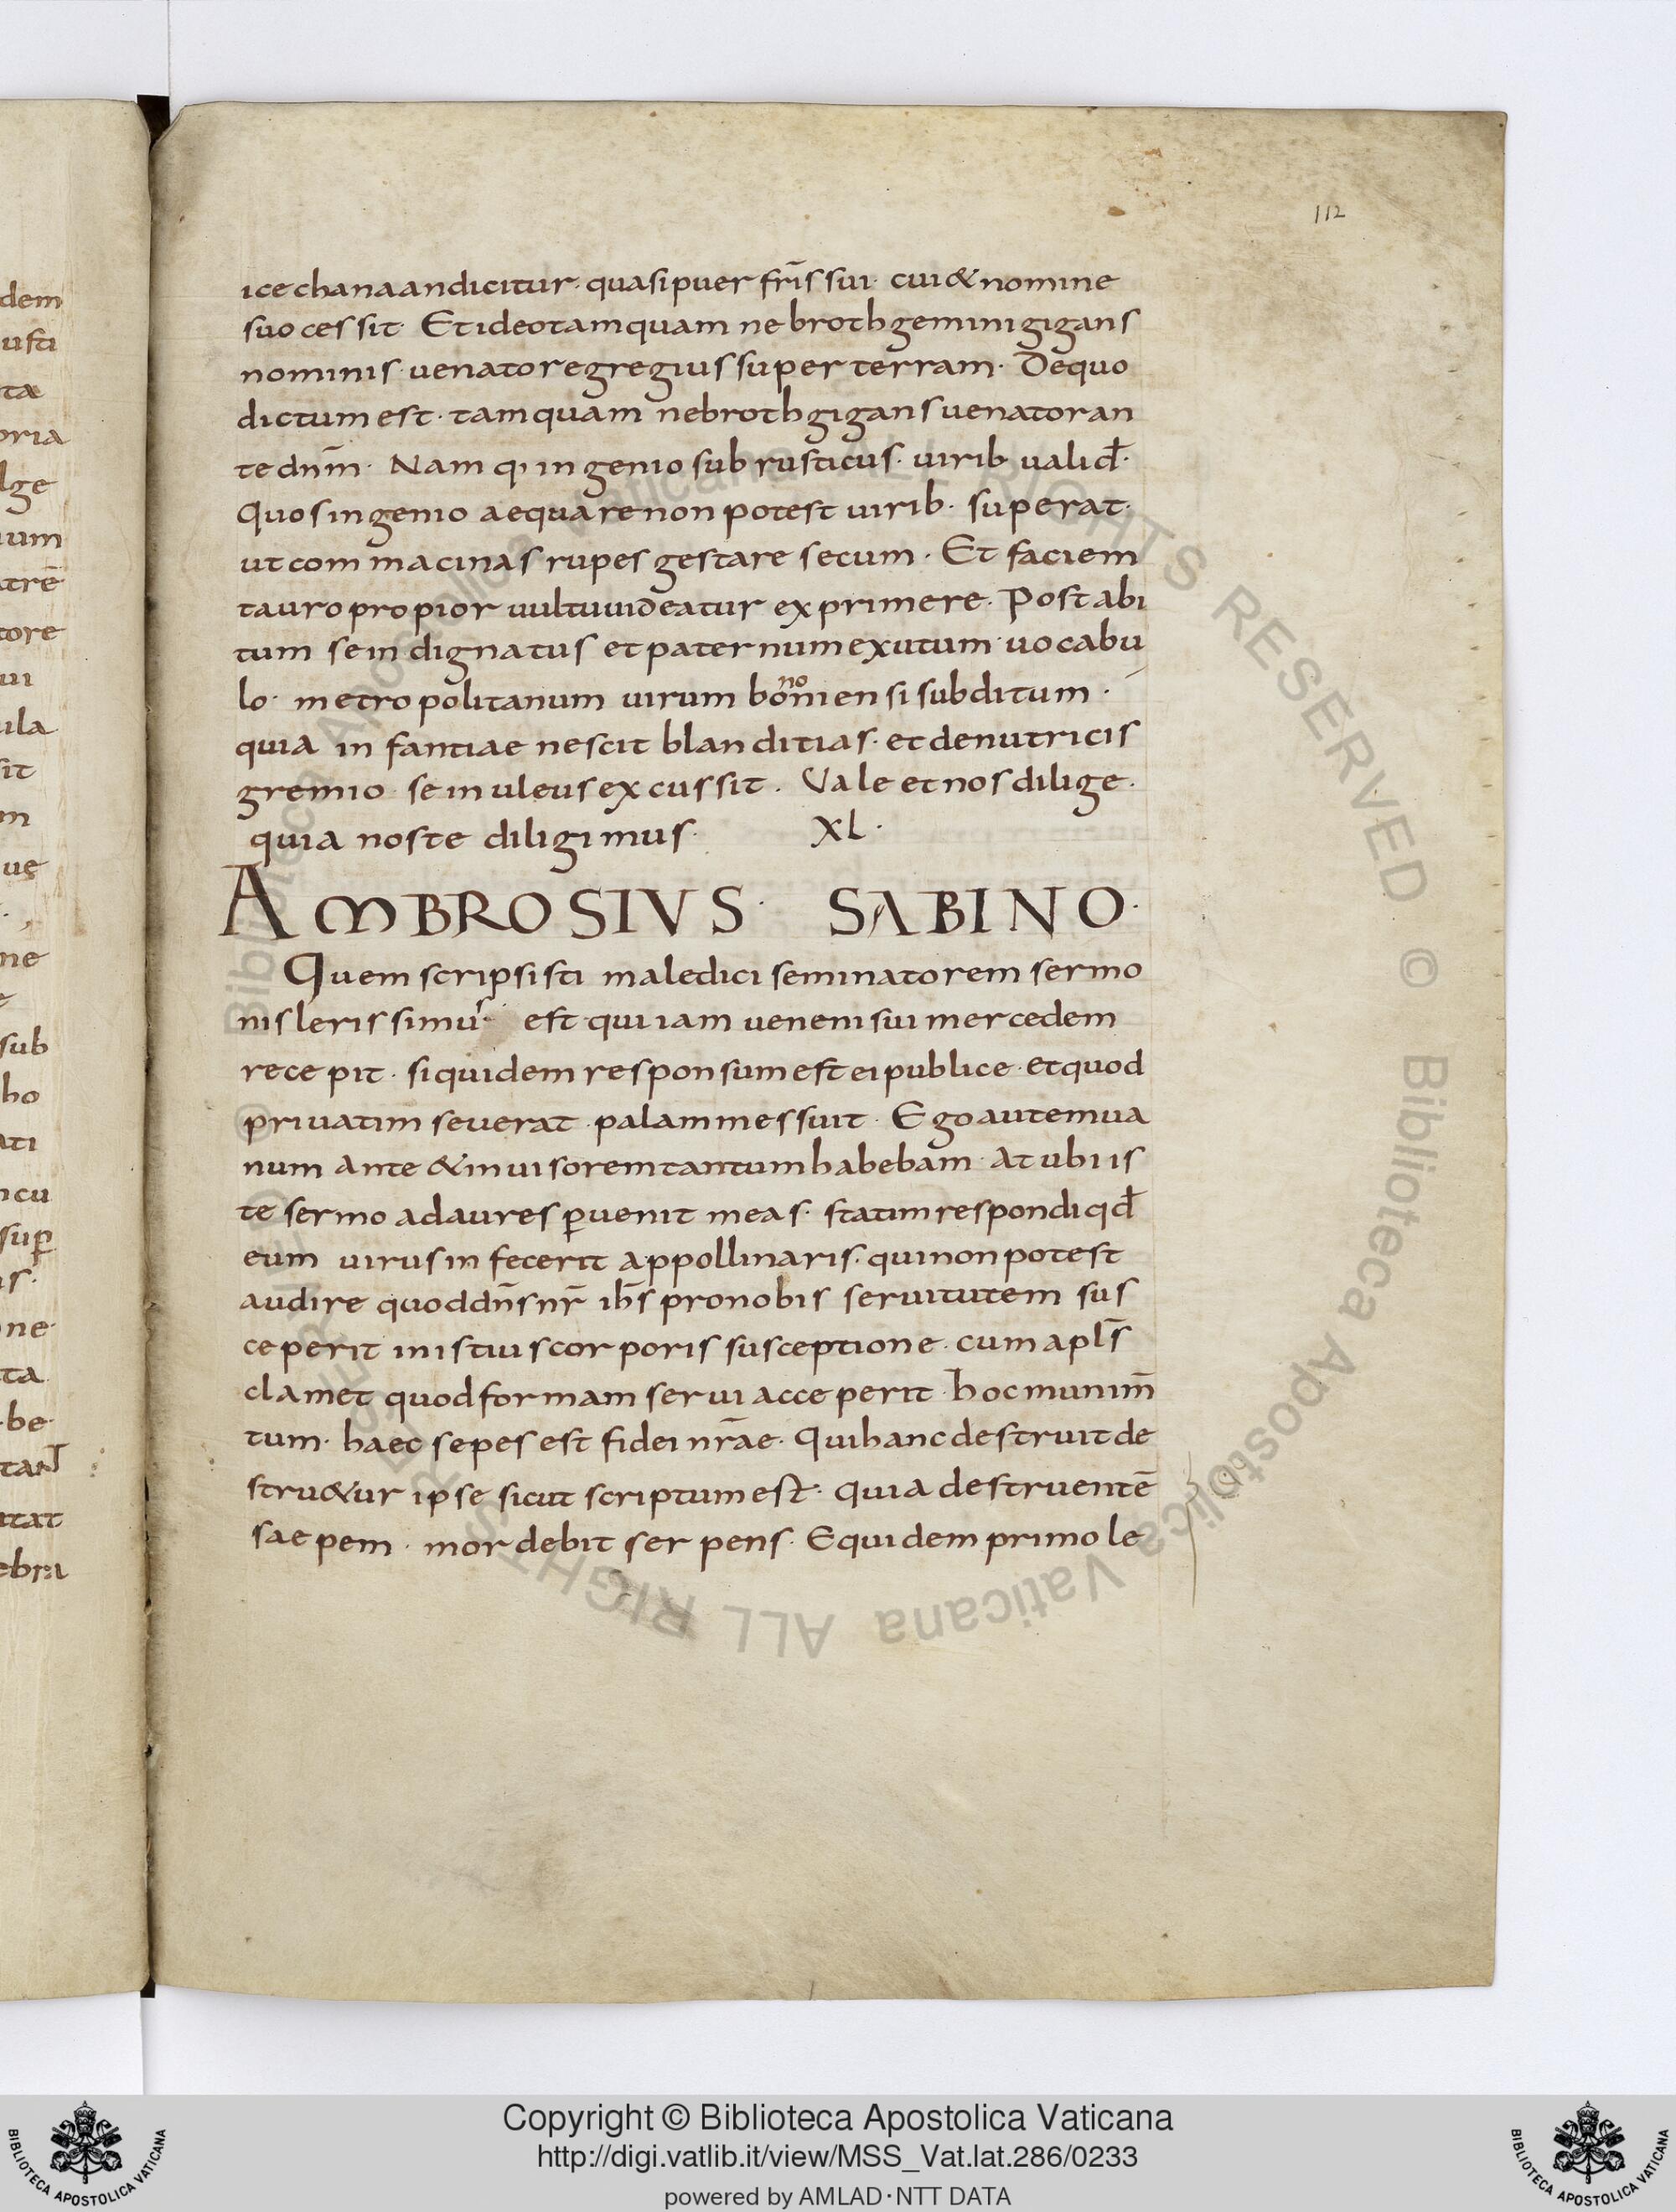 112
ice chanaan dicitur· quasi puer fr̄is sui· cui & nomine
suo cessit· Et ideo tamquam nebroth gemini gigans
nominis· uenator egregius super terram· De quo
dictum est· tamquam nebroth gigans uenator an
te dn̄m· Nam q· ingenio subrusticus· uirib· ualid̄·
Quos ingenio aequare non potest uirib· superat·
ut commacinas rupes gestare secum· Et faciem
tauro propior uultu uideatur exprimere· Post abi
tum se indignatus et paternum exutum· uocabu
lo· metropolitanum uirum bononiensi subditum·
quia infantiae nescit blanditias· et de nutricis
gremio· se inuleus excussit· Vale et nos dilige·
quia nos te diligimus· XL·
AMBROSIVS· SABINO·
Quem scripsisti maledici seminatorem sermo
nis lerissimus· est qui iam ueneni sui mercedem
recepit· siquidem responsum est ei publice· et quod
priuatim seuerat· palam messuit· Ego autem ua
num ante & inuisorem tantum habebam· At ubi is
te sermo ad aures p̱uenit meas· statim respondi qd̄
eum uirus infecerit appollinaris· qui non potest
audire quod dn̄s nr̄ ih̄s pro nobis seruitutem sus
ceperit in istius corporis susceptione· cum apl̄s
clamet quod formam serui acceperit· hoc munim̄
tum· haec sepes est fidei nr̄ae· Qui hanc destruit de
stru&ur ipse sicut scriptum est· quia destruentē
saepem· mordebit serpens· Equidem primo le
dem
usti
ta
oria
lge
uum
atrē
tore
ui
ula
sit
m
ne
sub
ho
ati
ncu
sup̱
is·
ne·
ta
be·
tant
utat
ebra
© Biblioteca Apostolica Vaticana ALL RIGHTS RESERVED © Biblioteca Apostolica Vaticana ALL RIGHTS RESERVED
Copyright © Biblioteca Apostolica Vaticana
http://digi.vatlib.it/view/MSS_Vat.lat.286/0233
powered by AMLAD·NTT DATA
BIBLIOTECA APOSTOLICA VATICANA
BIBLIOTECA APOSTOLICA VATICANA